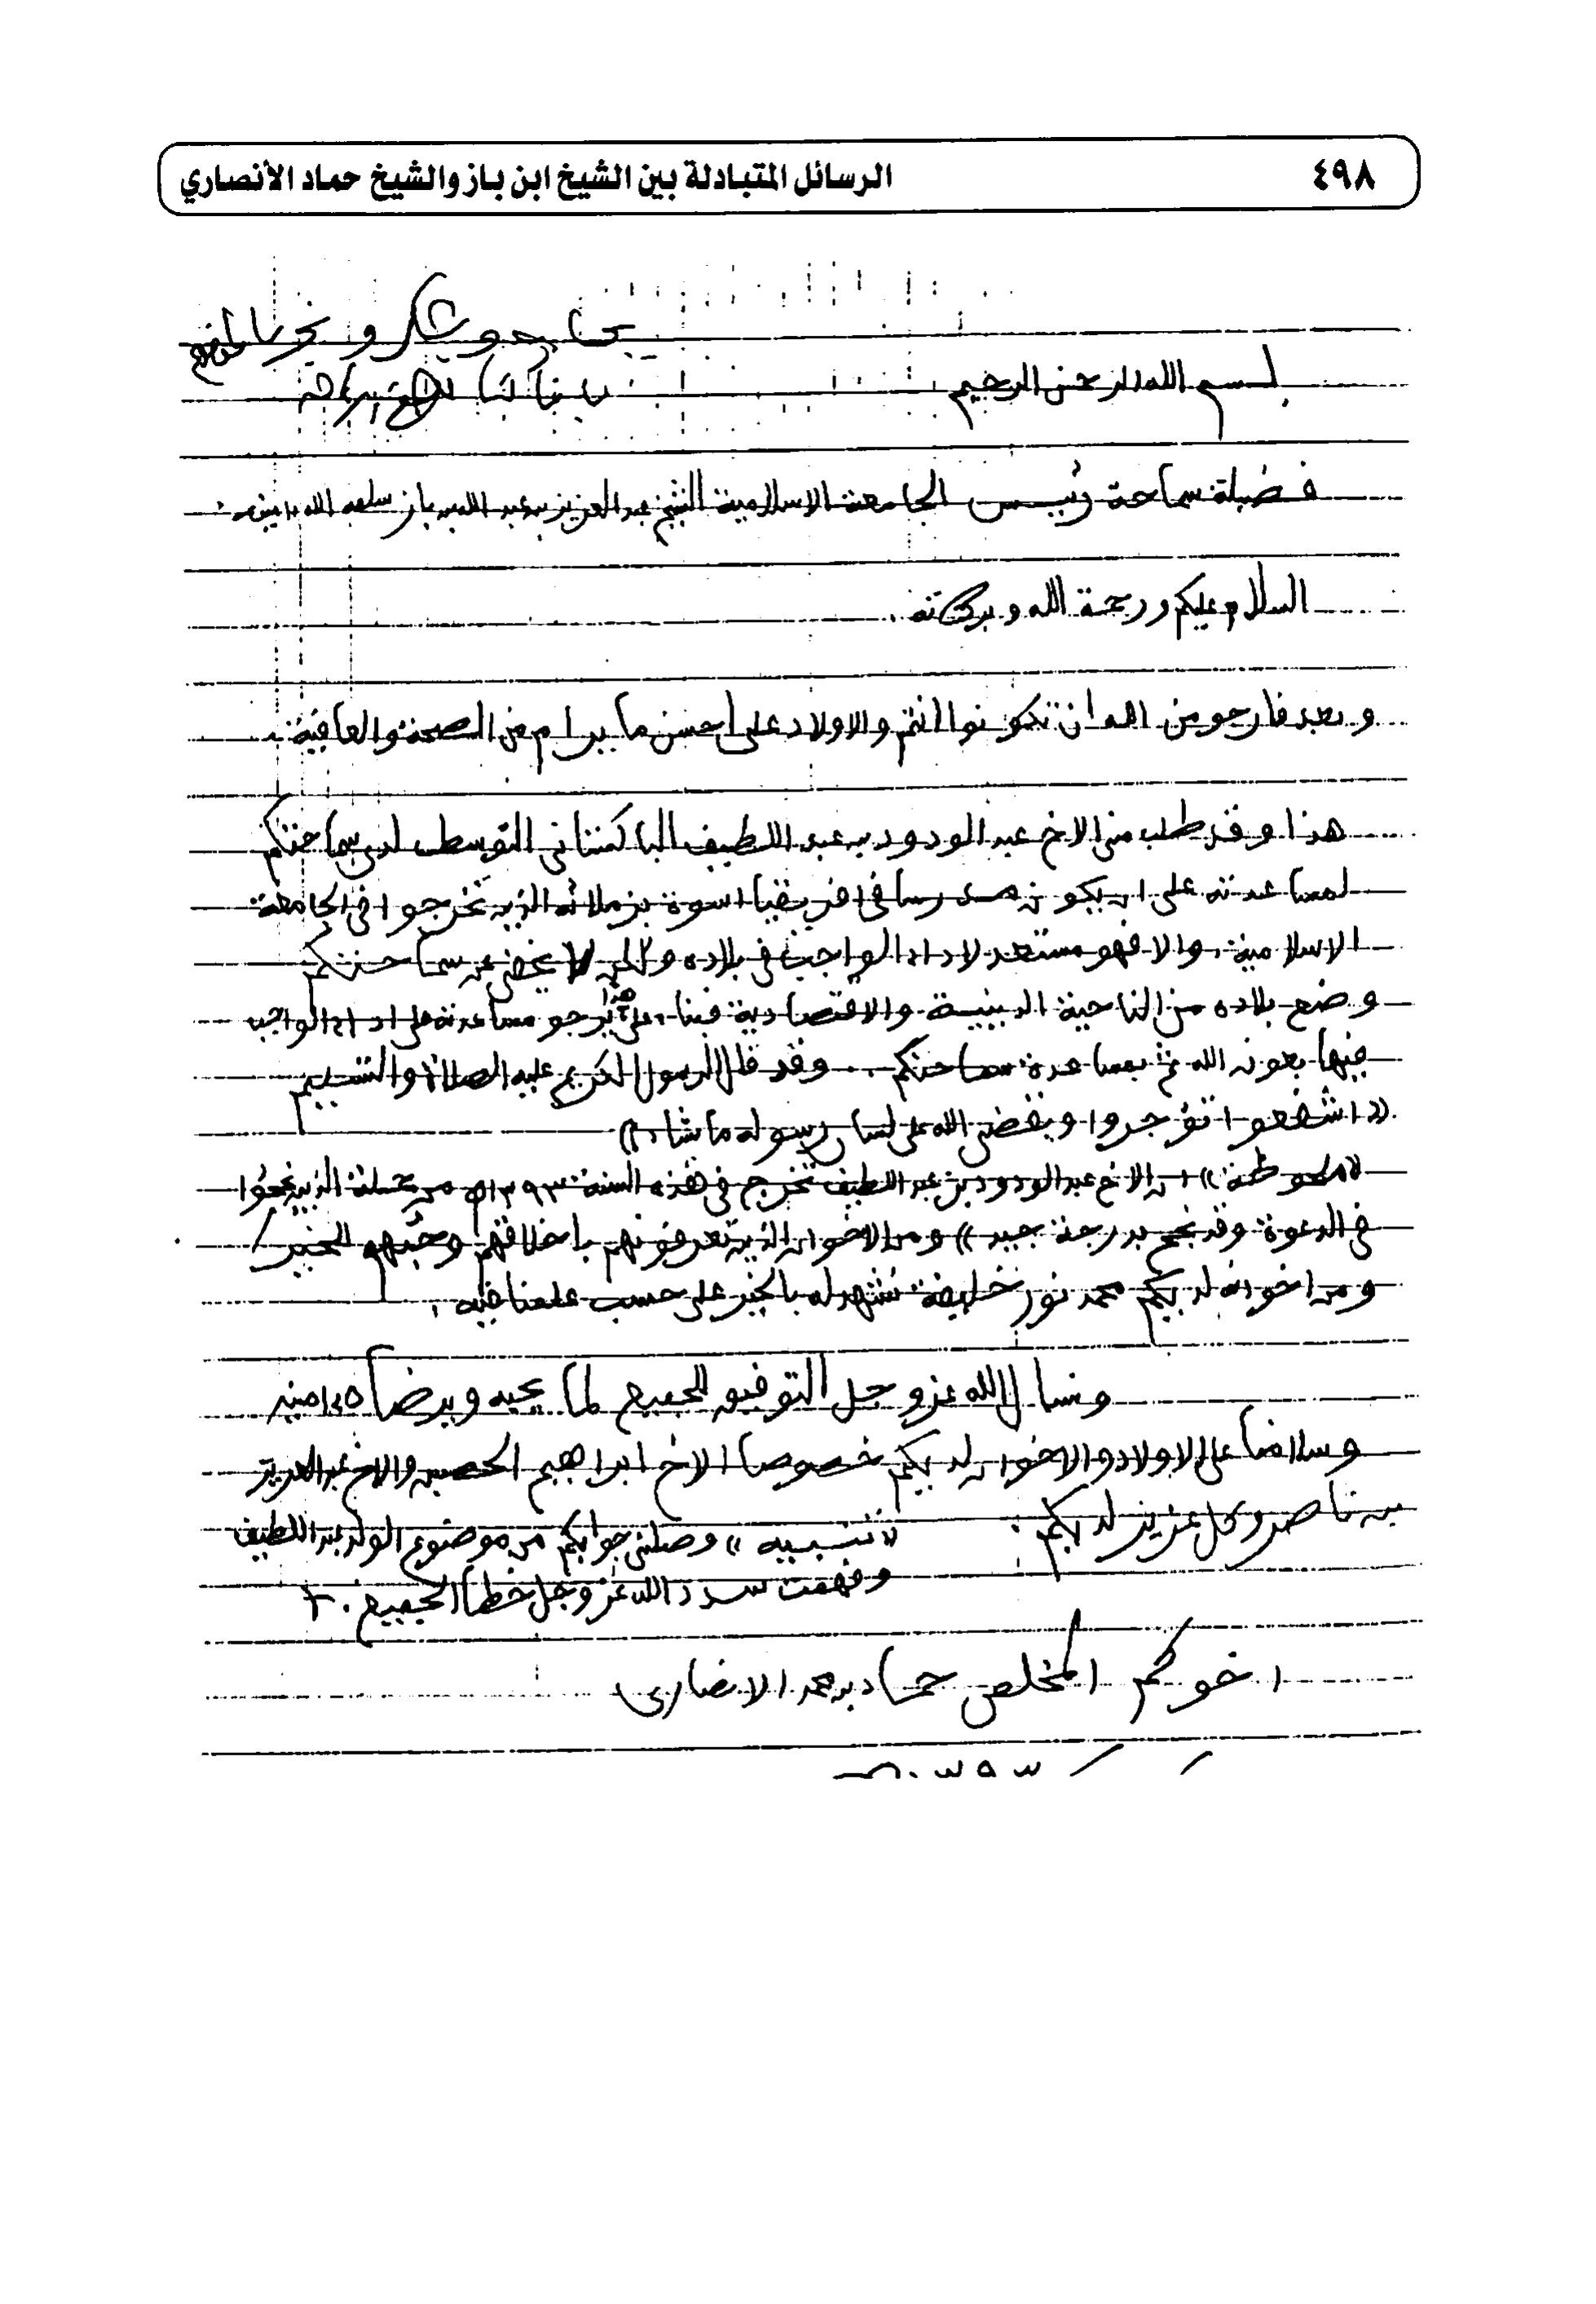 ٤٩٨
الرسائل المتبادلة بين الشيخ ابن باز والشيخ حماد الأنصاري
بسم الله الرحمن الرحيم
فضيلة سماحة رئيس الجامعة الاسلامية الشيخ عبد العزيز بن عبد الله بن باز سلمه الله
السلام عليكم ورحمة الله وبركاته
وبعد فارجو من الله ان تكونوا انتم والاولاد على احسن ما يرام من الصحة والعافية
هذا وقد طلب مني الاخ عبد الودود بن عبد اللطيف الباكستاني التوسط لدى سماحتكم
لمساعدته على ان يكون مدرسا في افريقيا اسوة بزملائه الذين تخرجوا في الجامعة
الاسلامية والا فهو مستعد لاداء الواجب في بلاده ولكن لا يخفى عن سماحتكم
وضع بلاده من الناحية الدينية والاقتصادية على هذا يرجو مساعدته على اداء الواجب
فيها بعون الله ثم بمساعدة سماحتكم .. وقد قال الرسول الكريم عليه الصلاة والتسليم
«اشفعوا تؤجروا ويقضى الله على لسان رسوله ما شاء»
«ملحوظة» ان الاخ عبد الودود بن عبد اللطيف تخرج في هذه السنة ١٣٩٣ه من جملة الذين نجحوا
في الدعوة وقد نجح بدرجة جيد» ومن الاخوان الذين تعرفونهم باخلاقهم وحبهم للخير/
ومن اخوانه لديكم محمد نور خليفة نشهد له بالخير على حسب علمنا فيه
ونسال الله عز وجل التوفيق للجميع لما يحبه ويرضاه امين
وسلامنا على الاولاد والاخوان لديكم خصوصا الاخ ابراهيم الحصين والاخ عبد العزيز
بن ناصر وكل عزيز لديكم.
«تنبيه» وصلني جوابكم من موضوع الولد عبد اللطيف
وفهمت سدد الله عز وجل خطا الجميع.
اخوكم المخلص حماد بن محمد الانصاري